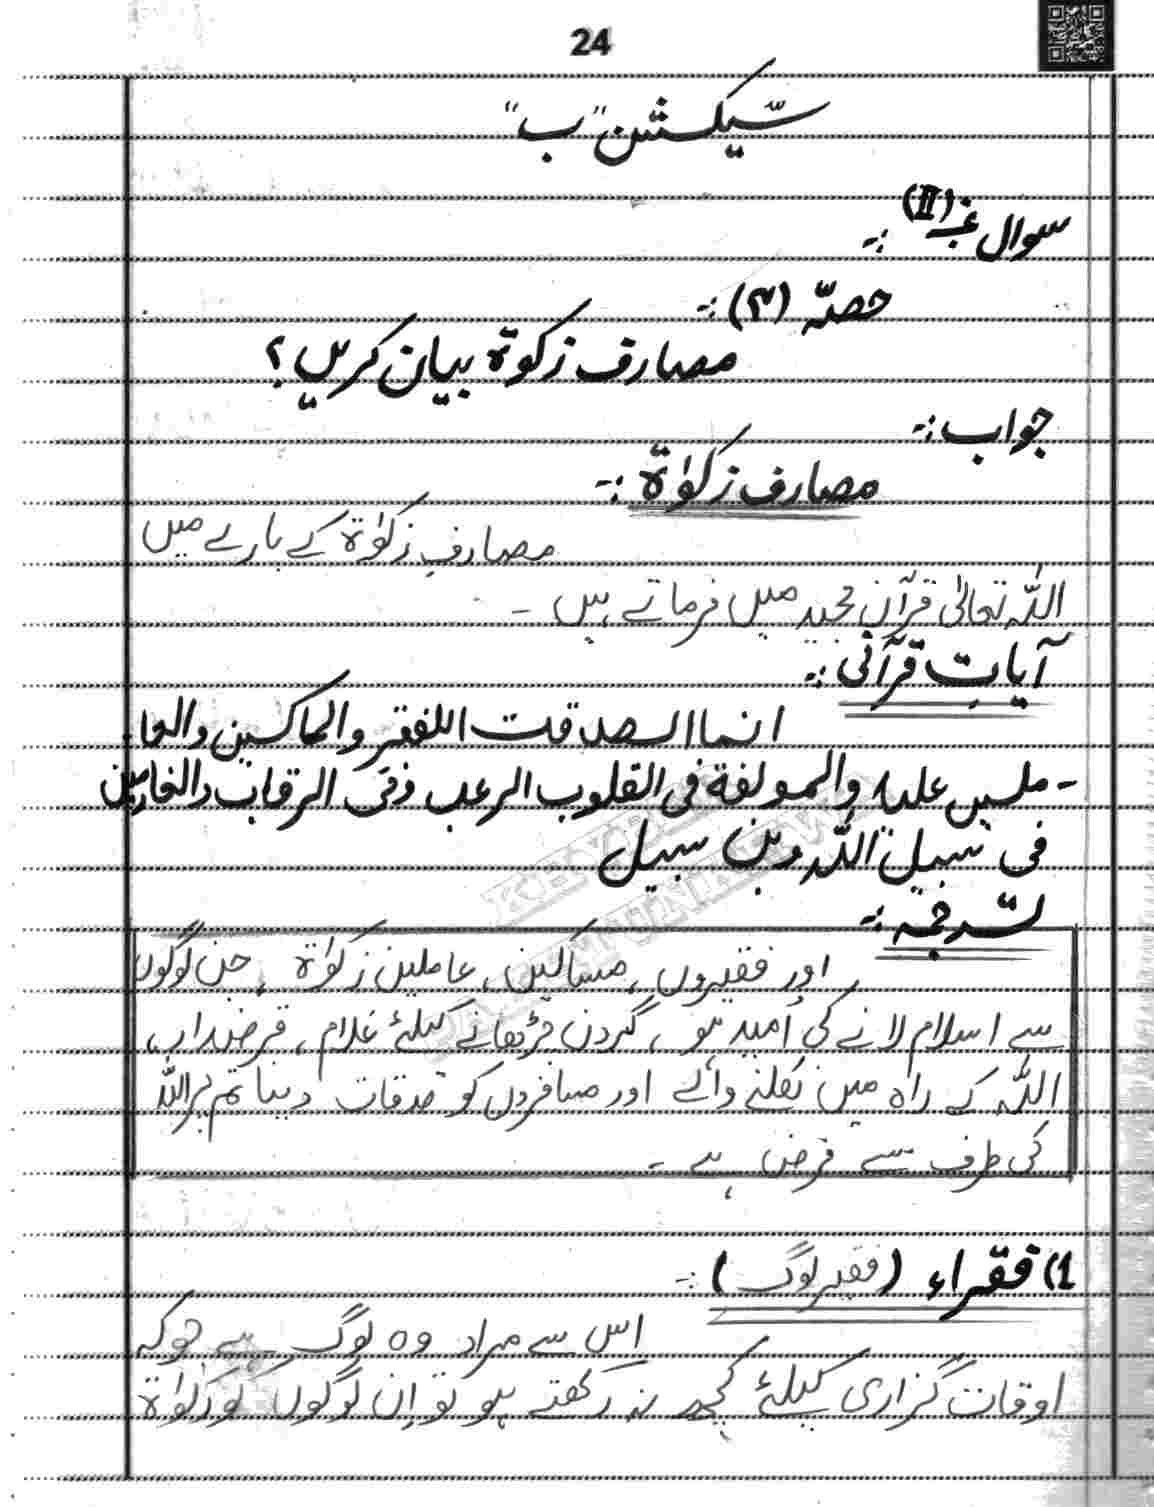 24
سیکشن "ب"
سوال نمبر (II) :-
حصہ (۳) :-
مصارف زکوۃ بیان کریں؟
جواب :-
مصارف زکوٰۃ :-
مصارفِ زکوٰۃ کے بارے میں
اللہ تعالیٰ قرآن مجید میں فرماتے ہیں -
آیات قرآنی :-
انما الصدقت اللفقر والماکسین والعا
- ملسین علیہ والمولفة فی القلوب الرعب وفی الرقاب والغارمین
فی سبیل اللہ وبن سبیل
ترجمہ :-
اور فقیروں، مساکین، عاملین زکوٰۃ، جن لوگوں
سے اسلام لانے کی امید ہو، گردن چڑھانے کیلئے غلام، قرضدار،
اللہ کے راہ میں نکلنے والے اور مسافروں کو صدقات دینا تم پر اللہ
کی طرف سے فرض ہے -
1) فقراء (فقیر لوگ) :-
اس سے مراد وہ لوگ ہے جو کہ
اوقات گزاری کیلئے کچھ نہ رکھتے ہو تو ان لوگوں کو زکوٰۃ
KHYBER
PAKHTUNKHWA